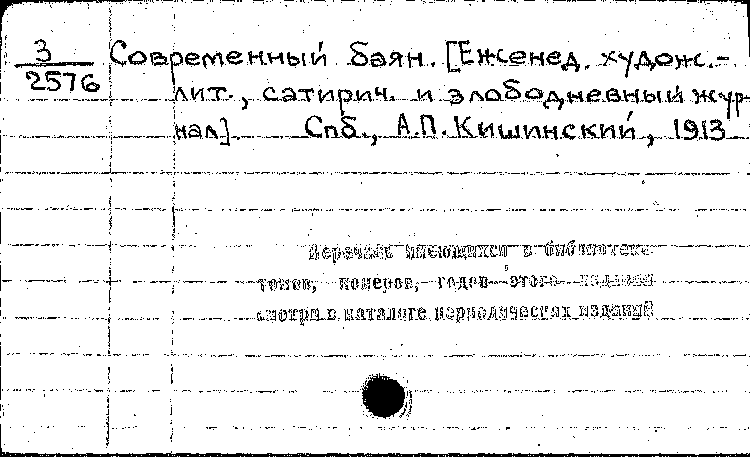 3 Современный баян. [Еженед. худож.-
2576 лит., сатирич. и злободневный жур-
нал]. Спб., А.П. Кишинский, 1913
Перечень имеющихся в библиотеке
томов, номеров, годов этого издания
смотри в каталоге периодических изданий